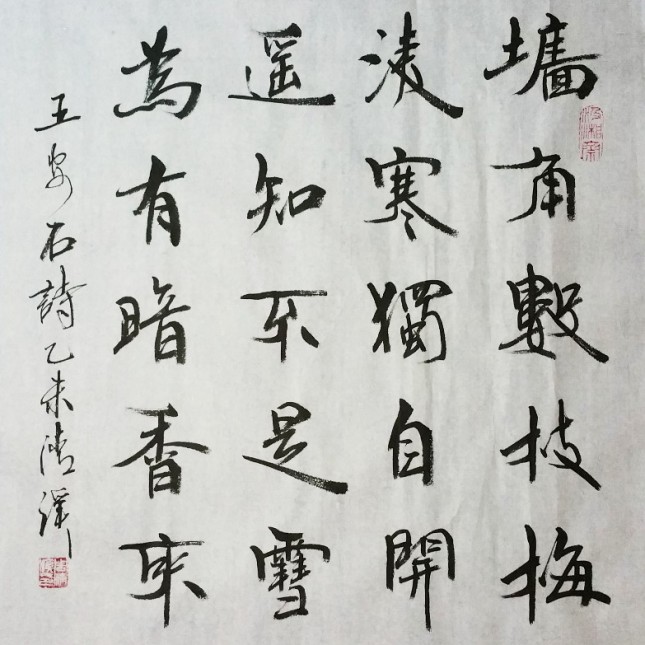 墻角數枝梅
凌寒獨自開
遥知不是雪
為有暗香來
王安石詩乙未